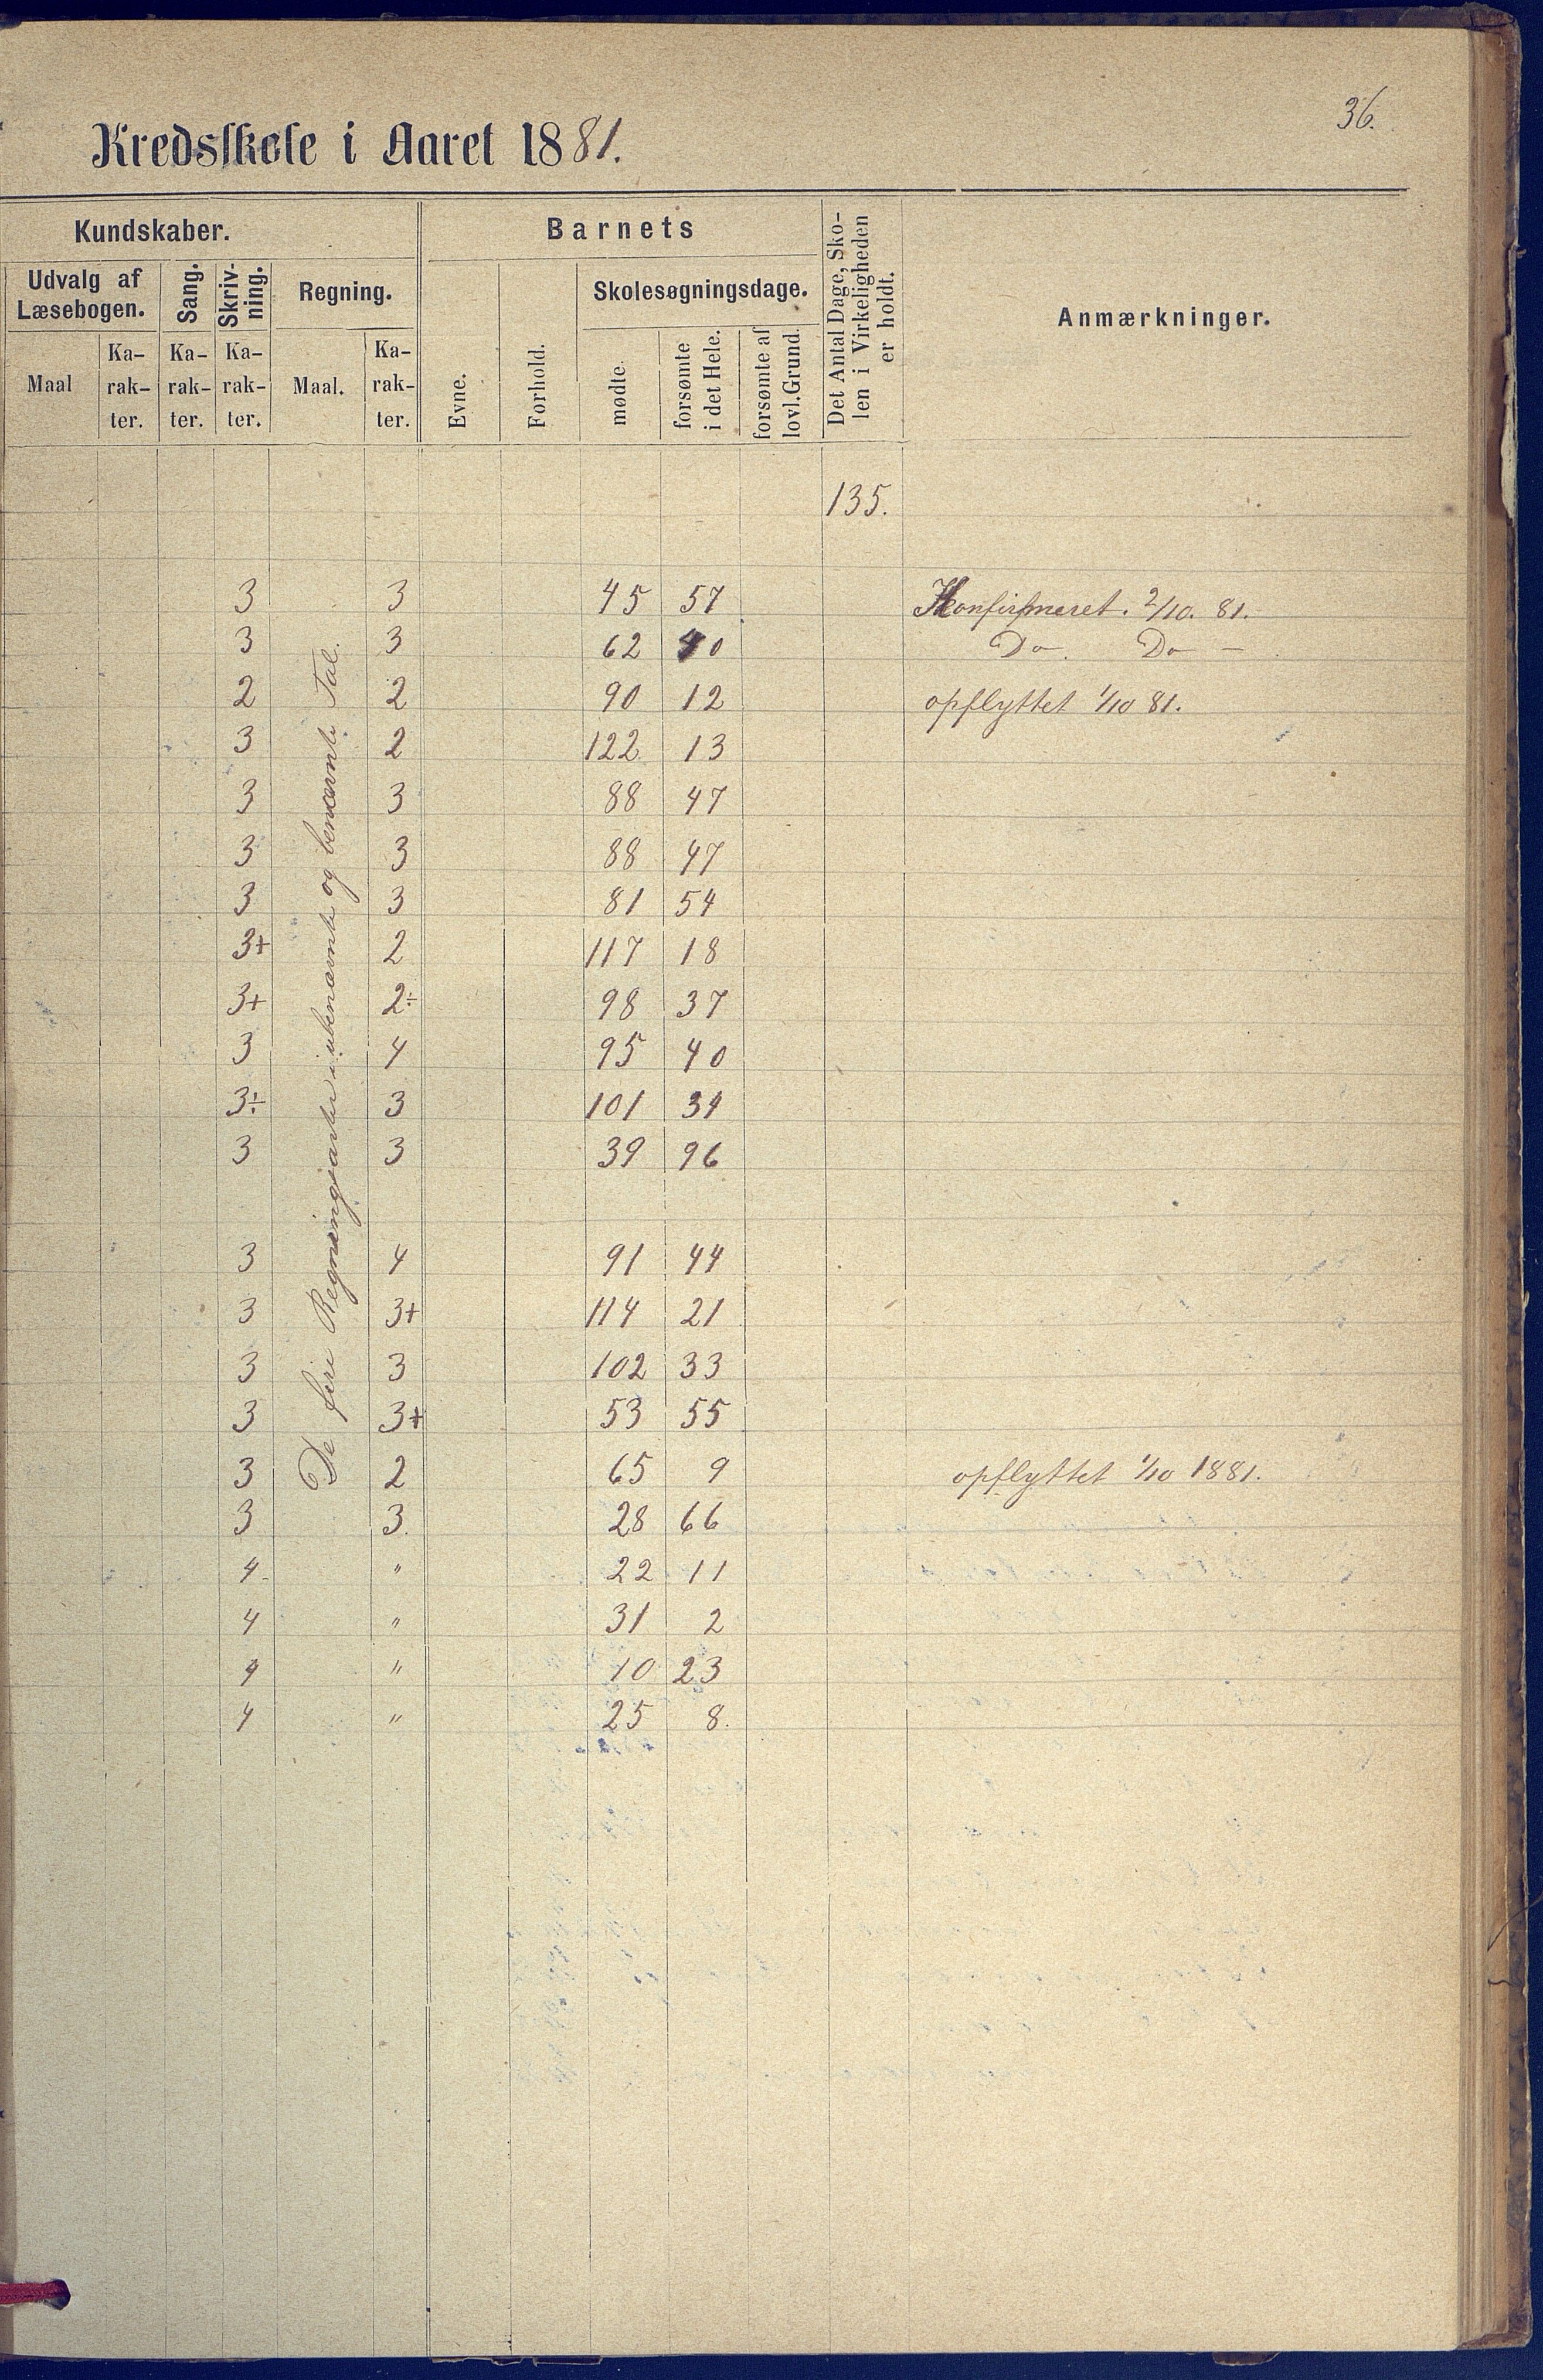 36.
Kredsskole i Aaret 1881.
Kundskaber.
Barnets
Det Antal Dage, Sko-
len i Virkeligheden
er holdt.
Anmærkninger.
Udvalg af
Læsebogen.
Sang.
Skriv-
ning.
Regning.
Evne.
Forhold.
Skolesøgningsdage.
Maal
Ka-
rak-
ter.
Ka-
rak-
ter.
Ka-
rak-
ter.
Maal.
Ka-
rak-
ter.
mødte.
forsømte
i det Hele.
forsømte af
lovl. Grund.
135.
De fire Regningsarter i ubenævnte og benævnte Tal.
3 3 45 57 Konfirmeret. 2/10. 81.
3 3 62 40 Do. Do –
2 2 90 12 opflyttet 1/10 81.
3 2 122 13
3 3 88 47
3 3 88 47
3 3 81 54
3+ 2 117 18
3+ 2÷ 98 37
3 4 95 40
3÷ 3 101 34
3 3 39 96
3 4 91 44
3 3+ 114 21
3 3 102 33
3 3+ 53 55
3 2 65 9 opflyttet 1/10 1881.
3 3. 28 66
4 " 22 11
4 " 31 2
4 " 10 23
4 " 25 8.